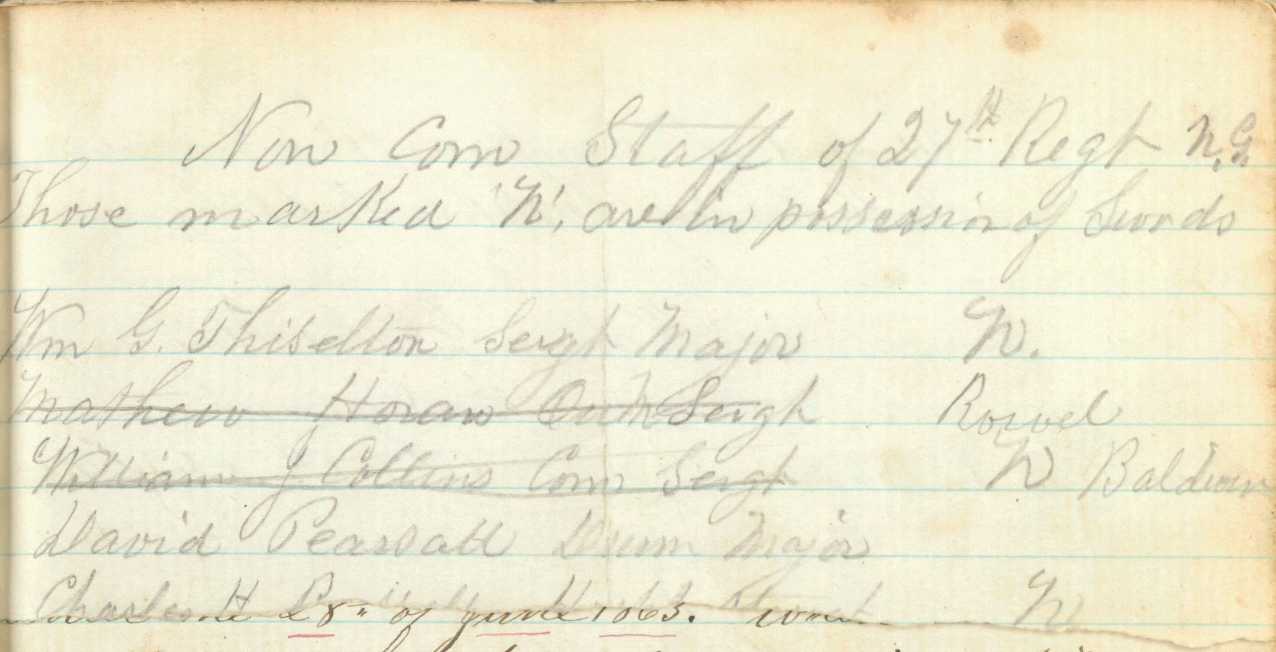 Non Com Staff of 27th Regt N.G.
Those marked 'N', are in possession of Swords
Wm G. Thiselton Sergt Major N.
Mathew Horan Qr M Sergt Rowel
William J Collins Com Sergt N Baldwin
David Pearsall Drum Major
Charles H N
28" of June 1863.